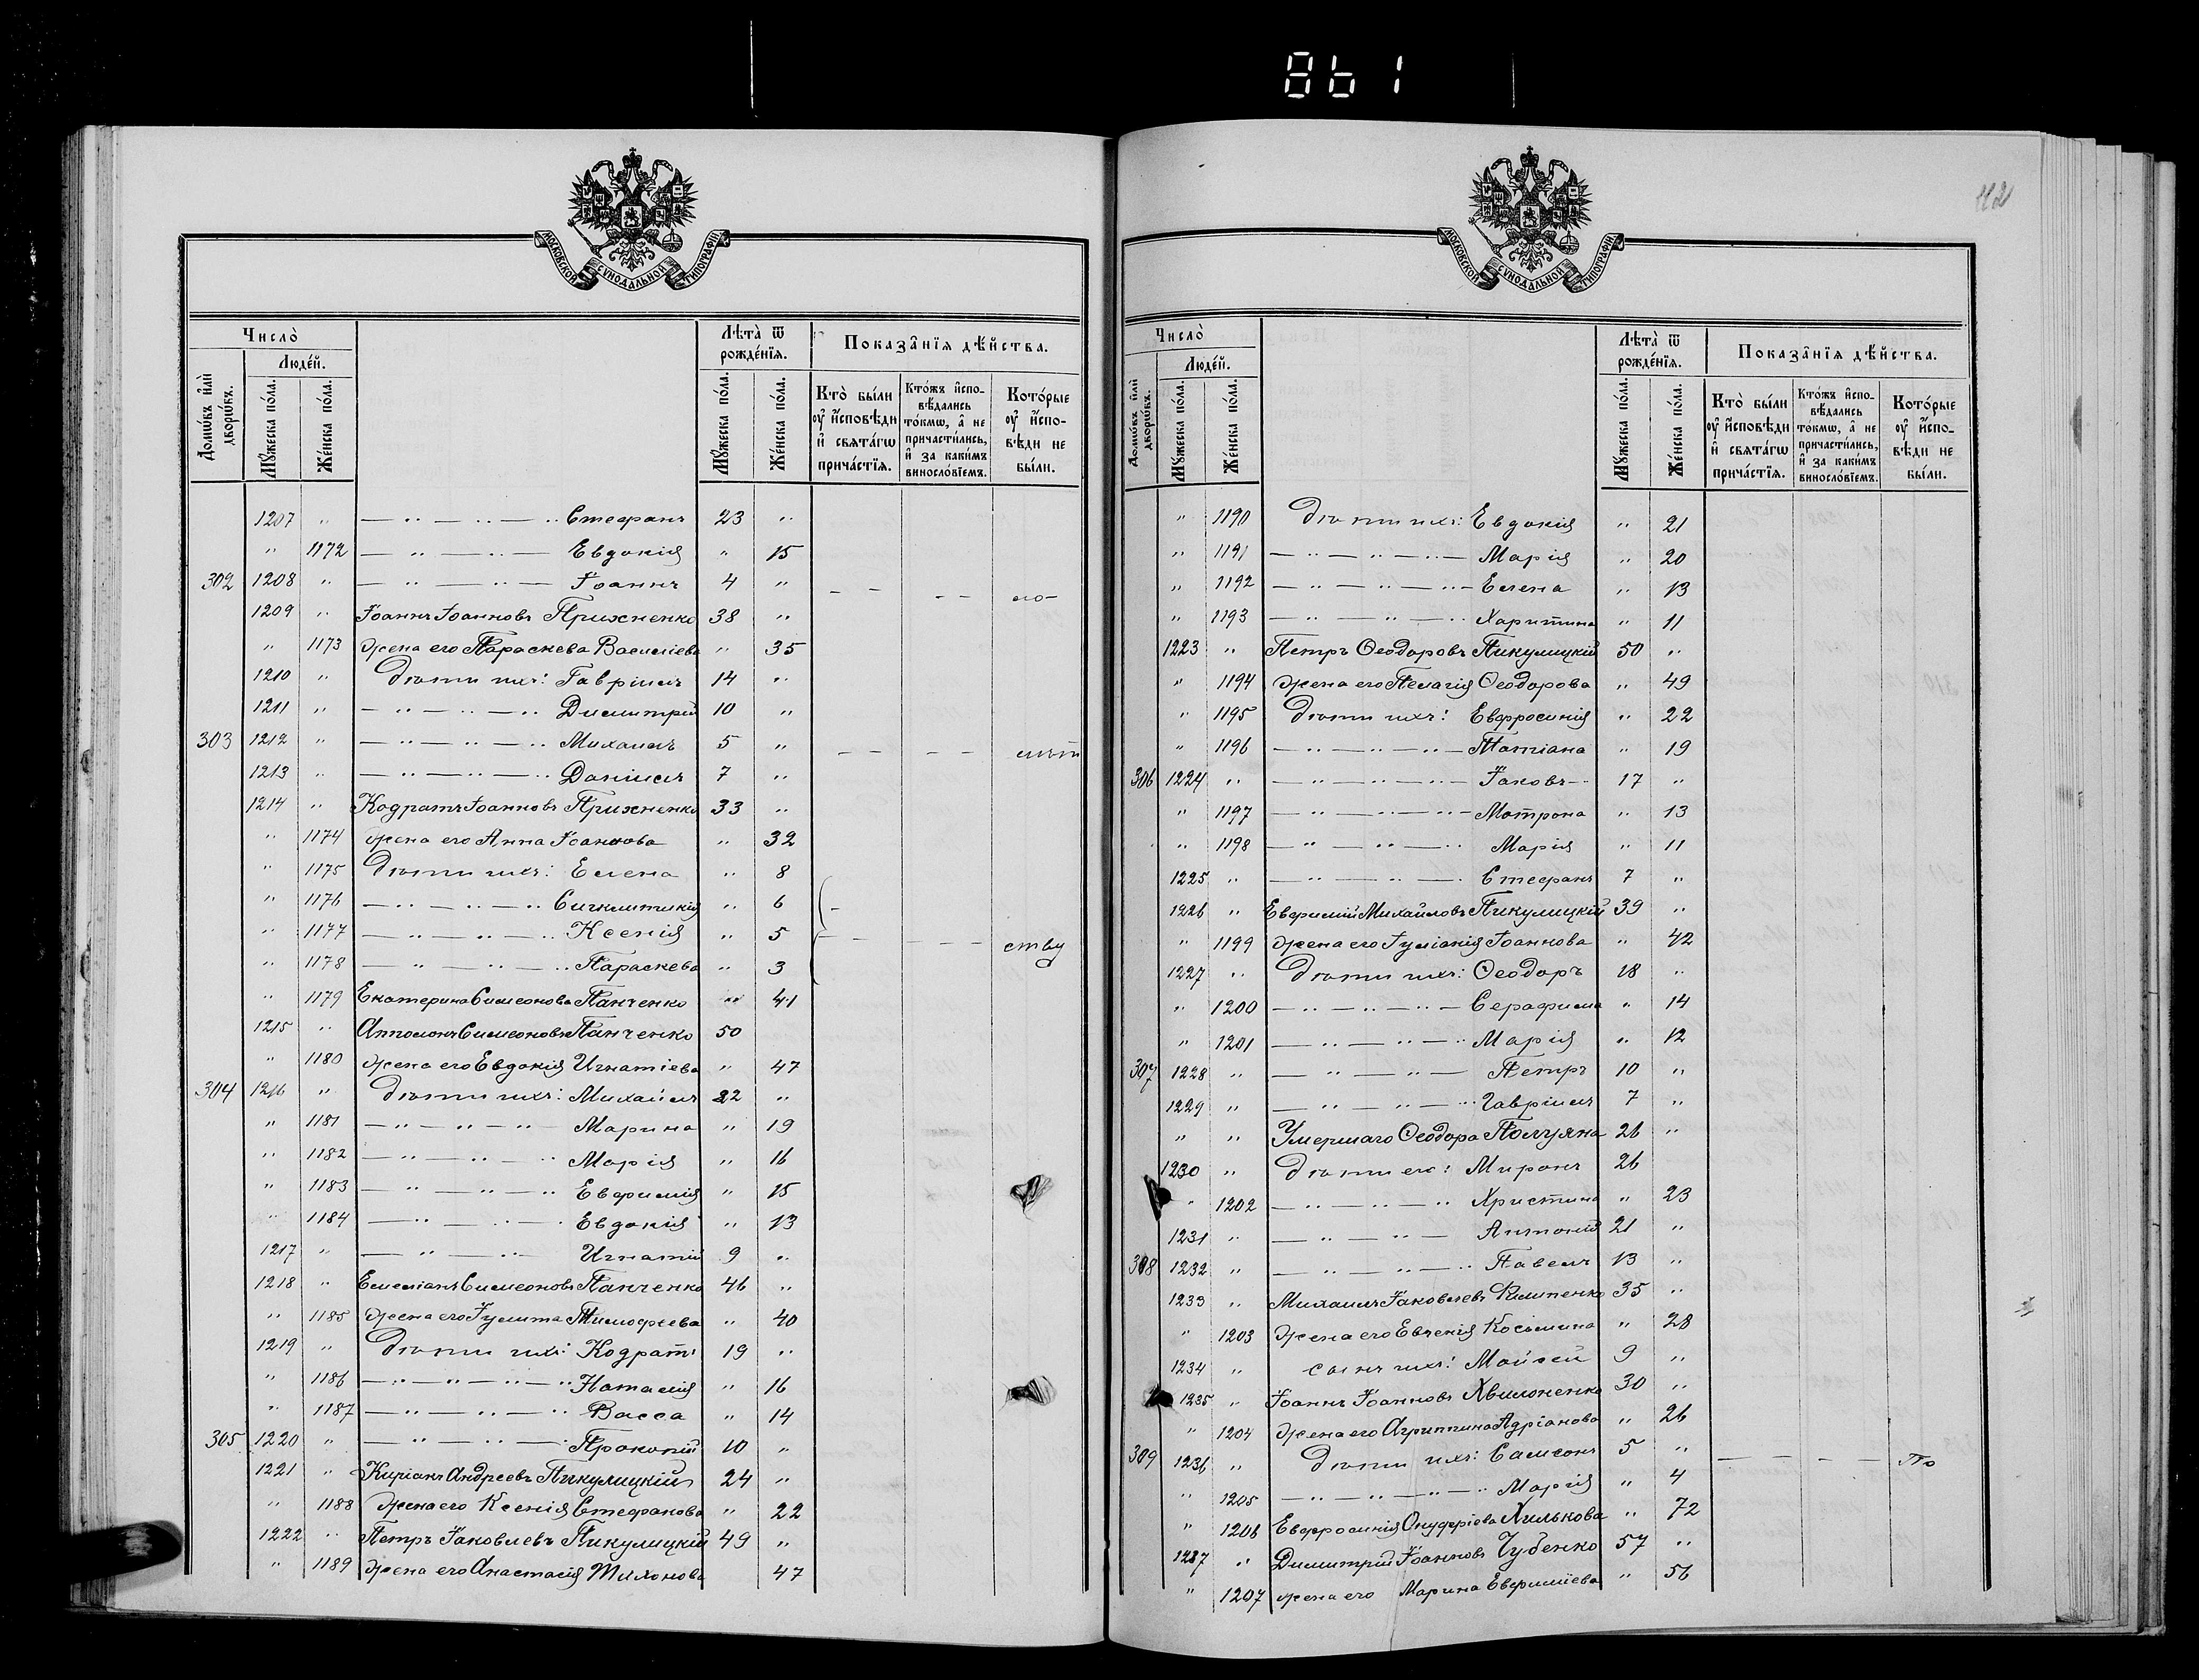 861
МОСКОВСКОЙ СѴНОДАЛЬНОЙ ТИПОГРАФІИ.
Число̀
Домѡ́въ и҆лѝ дворѡ́въ.
Люде́й.
Мꙋ́жеска по́ла.
Же́нска по́ла.
Лѣта̀ ѿ рожде́нїѧ.
Мꙋ́жеска по́ла.
Же́нска по́ла.
Показа̑нїѧ дѣ́йства.
Кто̀ бы́ли ᲂу҆ и҆́сповѣди и҆ свѧта́гѡ прича́стїѧ.
Кто́жъ и҆спо-вѣ́дались то́кмѡ, а҆ не причасти́лись, и҆ за каки́мъ винослові́емъ.
Кото́рые ᲂу҆ и҆́спо-вѣди не бы́ли.
1207 " — " — " — " Стефанъ 23 "
" 1172 — " — " — Евдокія " 15
302 1208 " — " — " — Іоаннъ 4 " - - - - его-
1209 " Іоаннъ Іоанновъ Прихненко 38 "
" 1173 жена его Параскева Василіева " 35
1210 " Дѣти ихъ: Гавріилъ 14 "
1211 " — " — " — " Димитрій 10 "
303 1212 " — " — " — " Михаилъ 5 " - - - - лѣт
1213 " — " — " — " Даніилъ 7 "
1214 " Кодратъ Іоанновъ Прихненко 33 "
" 1174 жена его Анна Іоаннова " 32
" 1175 Дѣти ихъ: Елена " 8
" 1176 — " — " — " Сигклитикія " 6
" 1177 — " — " — " Ксенія " 5 - - - - ству
" 1178 — " — " — " Параскева " 3
" 1179 Екатерина Симеонова Панченко " 41
1215 " Апполонъ Симеоновъ Панченко 50
" 1180 жена его Евдокія Игнатіева " 47
304 1216 " Дѣти ихъ: Михаилъ 22 "
" 1181 — " — " — " — Марина " 19
" 1182 — " — " — " Марія " 16
" 1183 — " — " — " Евфимія " 15
" 1184 — " — " Евдокія " 13
1217 " — " — " Игнатій 9 "
1218 " Емеліанъ Симеоновъ Панченко 46 "
" 1185 жена его Іулита Тимофеева " 40
1219 " Дѣти ихъ: Кодратъ 19 "
" 1186 — " — " — " — " Наталія " 16
" 1187 — " — " — " Васса " 14
305 1220 " — " — " — " Прокопій 10 "
1221 " Киріанъ Андреевъ Пикулицкій 24 "
" 1188 жена его Ксенія Стефанова " 22
1222 " Петръ Іаковлевъ Пикулицкій 49 "
" 1189 жена его Анастасія Тихонова 47
112
МОСКОВСКОЙ СѴНОДАЛЬНОЙ ТИПОГРАФІИ.
Число̀
Домѡ́въ и҆лѝ дворѡ́въ.
Люде́й.
Мꙋ́жеска по́ла.
Же́нска по́ла.
Лѣта̀ ѿ рожде́нїѧ.
Мꙋ́жеска по́ла.
Же́нска по́ла.
Показа̑нїѧ дѣ́йства.
Кто̀ бы́ли ᲂу҆ и҆́сповѣди и҆ свѧта́гѡ прича́стїѧ.
Кто́жъ и҆спо-вѣ́дались то́кмѡ, а҆ не причасти́лись, и҆ за каки́мъ винослові́емъ.
Кото́рые ᲂу҆ и҆́спо-вѣди не бы́ли.
" 1190 Дѣти ихъ: Евдокія " 21
" 1191 — " — " — " — Марія " 20
" 1192 — " — " — " — Елена " 13
" 1193 — " — " — " Харитина " 11
1223 " Петръ Ѳеодоровъ Пикулицкій 50 "
" 1194 жена его Пелагія Ѳеодорова " 49
" 1195 Дѣти ихъ: Евфросинія " 22
" 1196 — " — " — " — Татіана " 19
306 1224 " — " — " — " — Іаковъ 17 "
" 1197 — " — " — " — Мотрона " 13
" 1198 — " — " — " Марія " 11
1225 " — " — " — Стефанъ 7 "
1226 " Евфимій Михайловъ Пикулицкій 39 "
" 1199 жена его Іуліанія Іоаннова " 42
1227 " Дѣти ихъ: Ѳеодоръ 18 "
" 1200 — " — " — " — Серафима " 14
" 1201 — " — " — " Марія " 12
307 1228 " — " — " — Петръ 10 "
1229 " — " — " — " Гавріилъ 7 "
" " Умершаго Ѳеодора Полуяна 26 "
1230 " Дѣти его: Миронъ 26
" 1202 — " — " — " Христина " 23
1231 " — " — " — Антоній 21 "
308 1232 " — " — " — " Павелъ 13 "
1233 " Михаилъ Іаковлевъ Филипенко 35 "
" 1203 жена его Евгенія Косьмина " 28
1234 " сынъ ихъ: Мойсей 9 "
1235 " Іоаннъ Іоанновъ Хвилоненко 30 "
" 1204 жена его Агриппина Адріанова " 26
309 1236 " Дѣти ихъ: Самсонъ 5 " - - - - По
" 1205 — " — " — " — " Марія " 4
" 1206 Евфросинія Онуфріева Хилькова " 72
1237 " Димитрій Іоанновъ Чубенко 57 "
" 1207 жена его Марина Евфиміева " 56